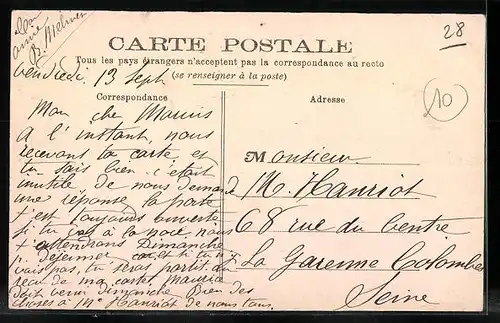 amie
B. Melmer
28
CARTE POSTALE
Tous les pays étrangers n'acceptent pas la correspondance au recto
(se renseigner à la poste)
vendredi 13 Sept
Correspondance
Mon cher Maurice
A l'instant, nous
recevons ta carte, et
tu sais bien c'était
inutile de nous demander
une réponse la porte
t'est toujours ouverte
si tu vas à la noce, nous
t'attendrons Dimanche
p. déjeuner car si tu n'y
vais pas, tu seras parti
reçu de ma carte, Maurice
doit venir dimanche Bien des
choses à Me Hanriot de nous tous.
Adresse
10
Monsieur
M. Hanriot
68 rue du Centre
La Garenne Colombes
Seine